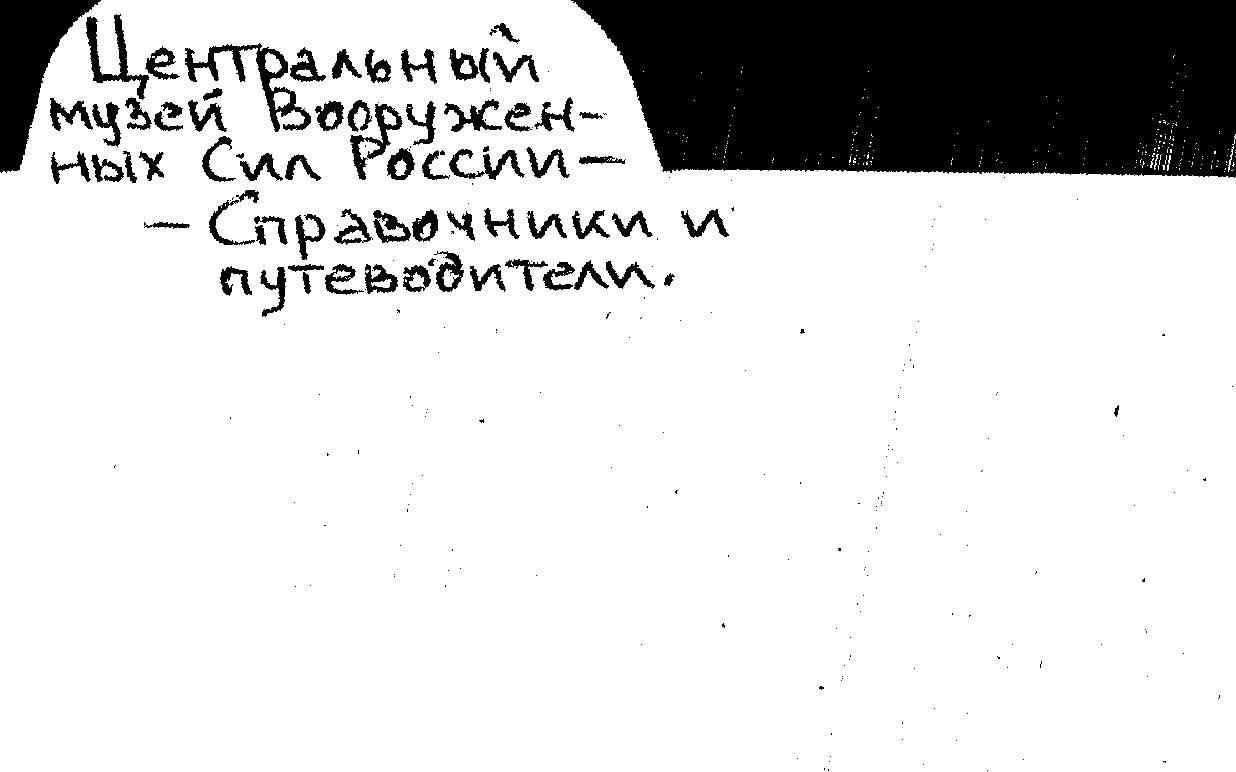 Центральный
музей Вооружен-
ных Сил России —
— Справочники и
путеводители.